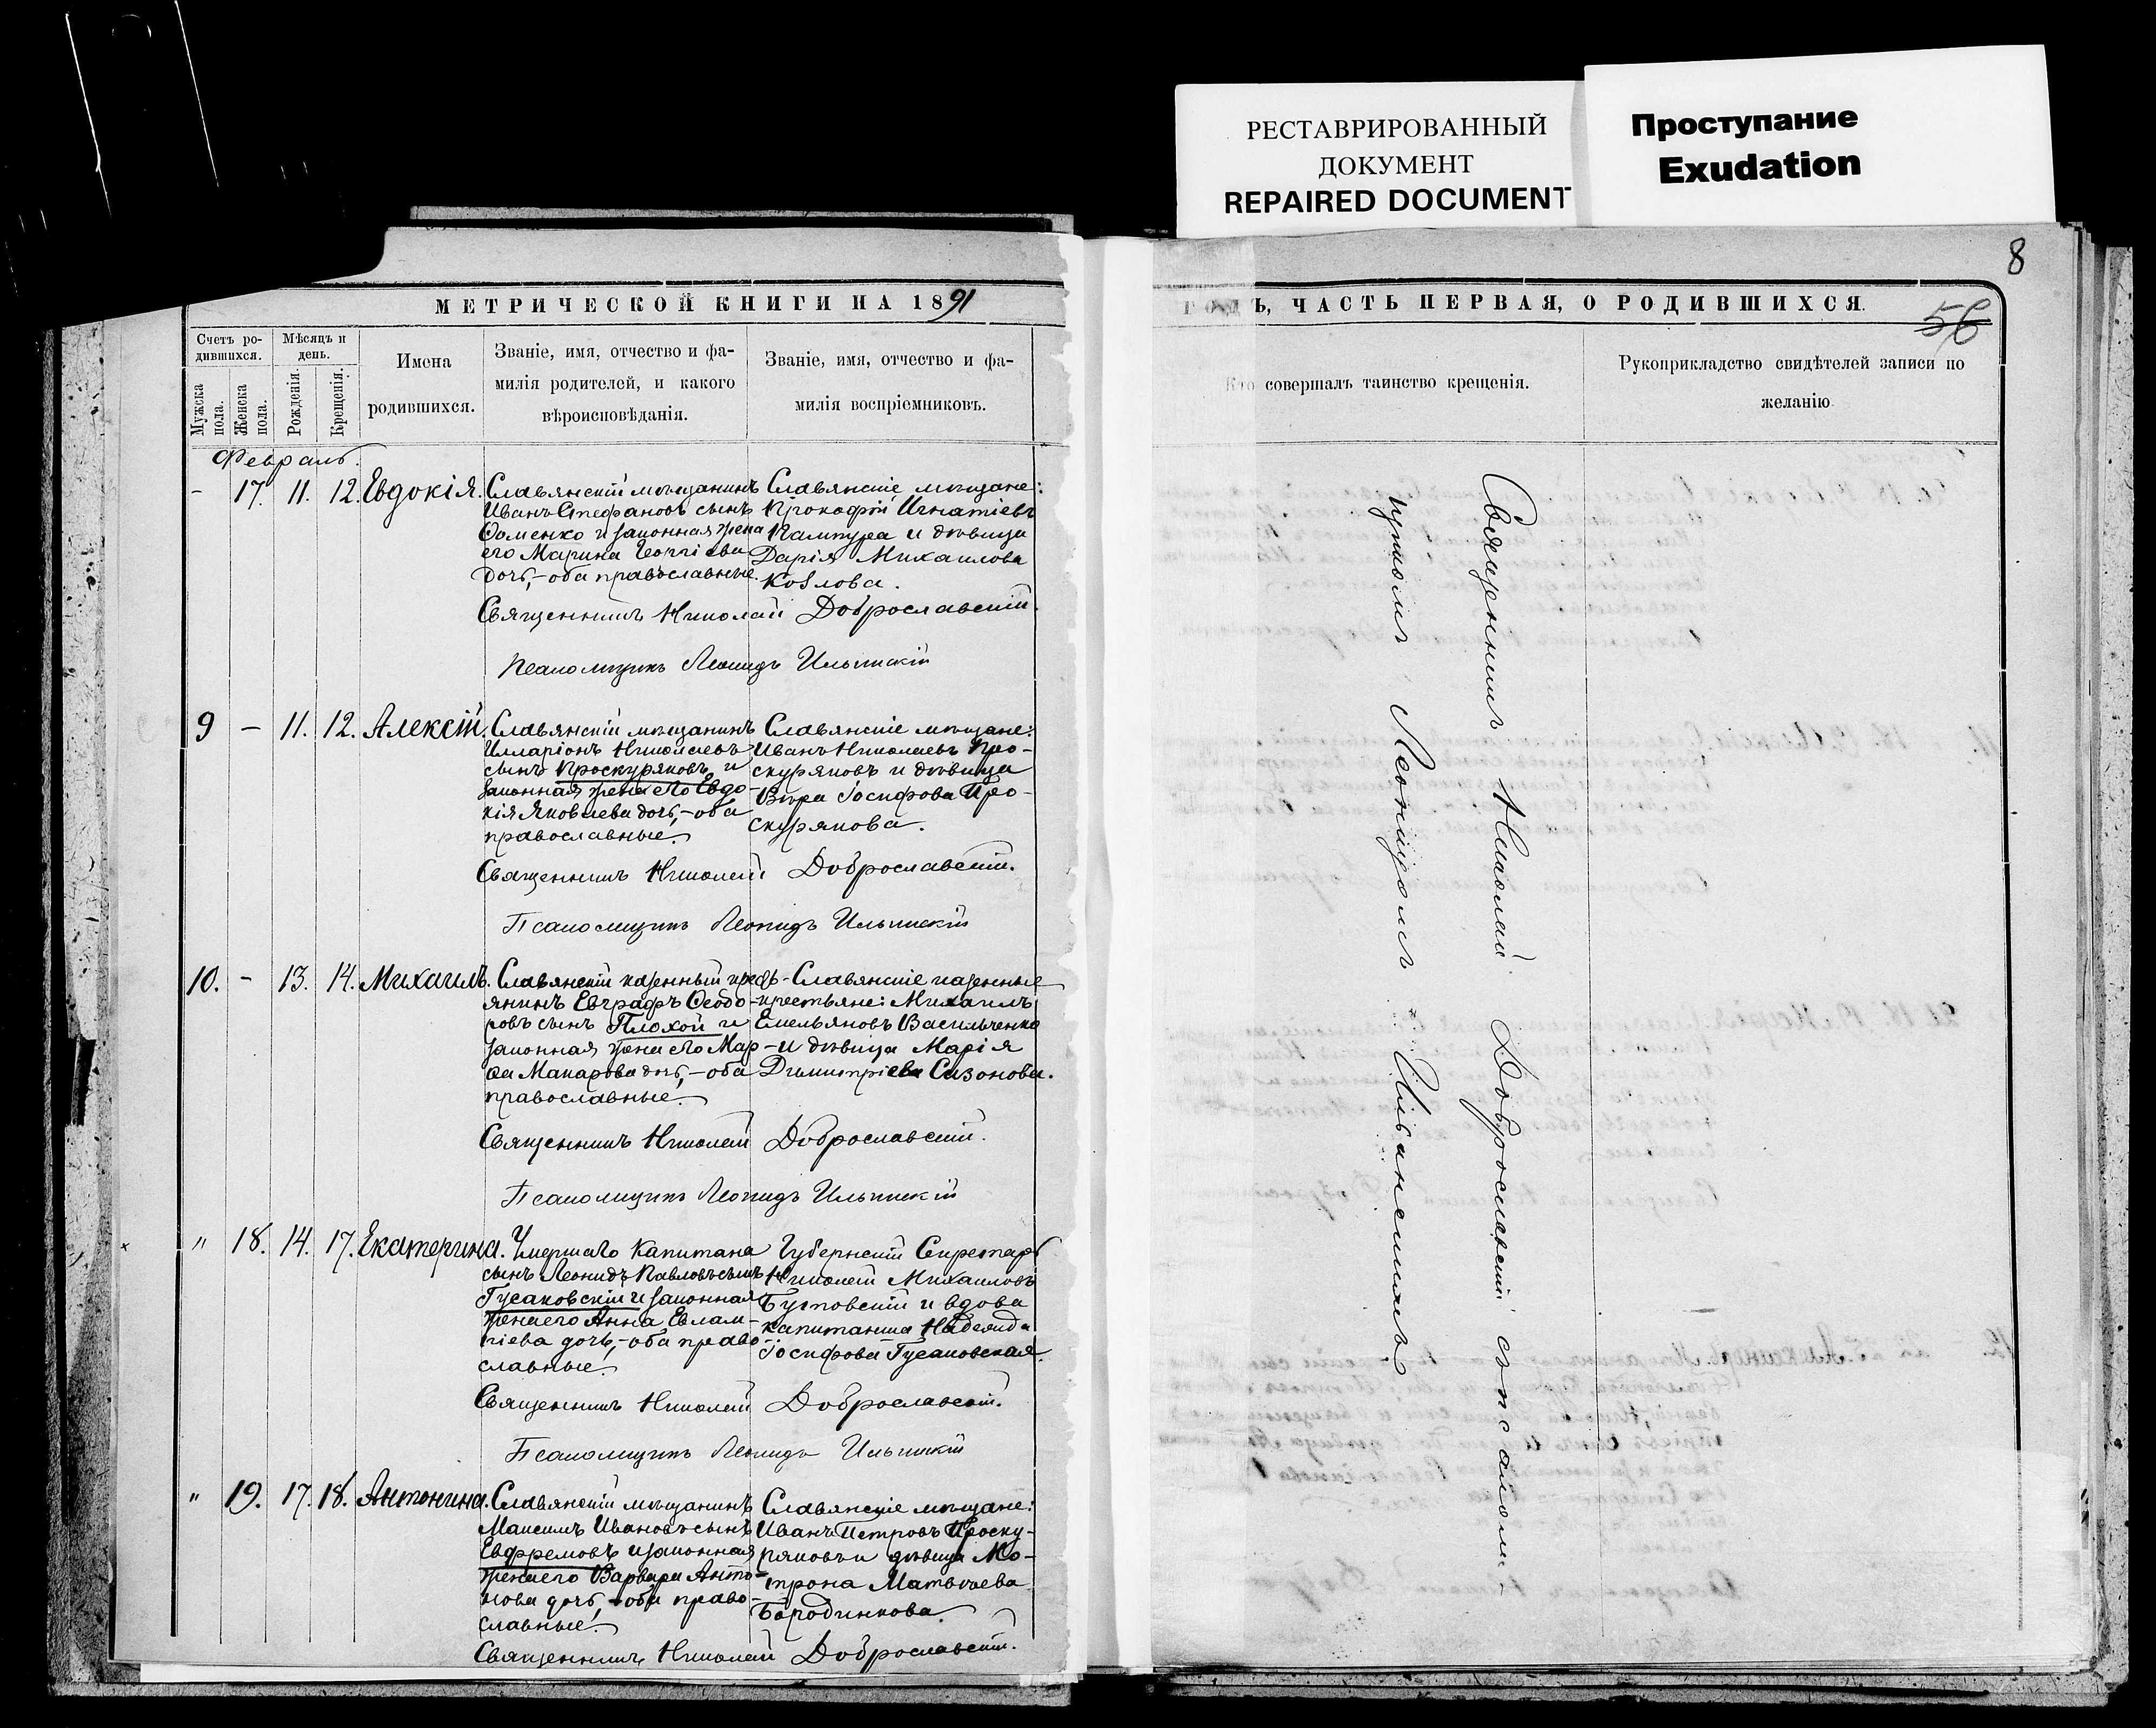 РЕСТАВРИРОВАННЫЙ
ДОКУМЕНТ
REPAIRED DOCUMENT
Проступание
Exudation
8
56
МЕТРИЧЕСКОЙ КНИГИ НА 1891
ГОДЪ, ЧАСТЬ ПЕРВАЯ, О РОДИВШИХСЯ.
Счетъ ро-
дившихся.
Мужска
пола.
Женска
пола.
Мѣсяцъ и
день.
Рожденія.
Крещенія.
Имена
родившихся.
Званіе, имя, отчество и фа-
милія родителей, и какого
вѣроисповѣданія.
Званіе, имя, отчество и фа-
милія воспріемниковъ.
Кто совершалъ таинство крещенія.
Рукоприкладство свидѣтелей записи по
желанію.
Февраль.
- 17. 11. 12. Евдокія.
Славянскій мѣщанинъ
Иванъ Стефановъ сынъ
Фоменко и законная жена
его Марина Георгіева
дочь,-оба православные.
Славянскіе мѣщане:
Прокофій Игнатіевъ
и дѣвица
Дарія Михаилова
Козлова.
Священникъ Николай Доброславскій.
Псаломщикъ Леонидъ Ильинскій
9 - 11. 12. Алексій.
Славянскій мѣщанинъ
Илларіонъ Николаевъ
сынъ Проскуряковъ и
законная жена его Евдо-
кія Яковлева дочь,-оба
православные.
Славянскіе мѣщане:
Иванъ Николаевъ Про-
скуряковъ и дѣвица
Вѣра Іосифова Про-
скурякова.
Священникъ Николай Доброславскій.
Псаломщикъ Леонидъ Ильинскій
10. - 13. 14. Михаилъ.
Славянскій казенный кресть-
янинъ Евграфъ Ѳеодо-
ровъ сынъ Плохой и
законная жена его Мар-
ѳа Макарова дочь,-оба
православные.
Славянскіе казенные
крестьяне: Михаилъ
Емельяновъ Васильченко
и дѣвица Марія
Димитріева Сизонова.
Священникъ Николай Доброславскій.
Псаломщикъ Леонидъ Ильинскій
" 18. 14. 17. Екатерина.
Умершаго Капитана
сынъ Леонидъ Павловъ сынъ
Гусаковскій и законная
жена его Анна Евлам-
піева дочь,-оба право-
славные.
Губернскій Секретарь
Николай Михаиловъ
Бутовскій и вдова
капитанша Надежда
Іосифова Гусаковская.
Священникъ Николай Доброславскій.
Псаломщикъ Леонидъ Ильинскій
" 19. 17. 18. Антонина.
Славянскій мѣщанинъ
Максимъ Ивановъ сынъ
Евфремовъ и законная
жена его Варвара Анто-
нова дочь,-оба право-
славные.
Славянскіе мѣщане:
Иванъ Петровъ Проску-
ряковъ и дѣвица Ма-
трона Матвѣева
Бородинкова.
Священникъ Николай Доброславскій.
Священникъ Николай Доброславскій съ псалом-
щикомъ Леонидомъ Ильинскимъ